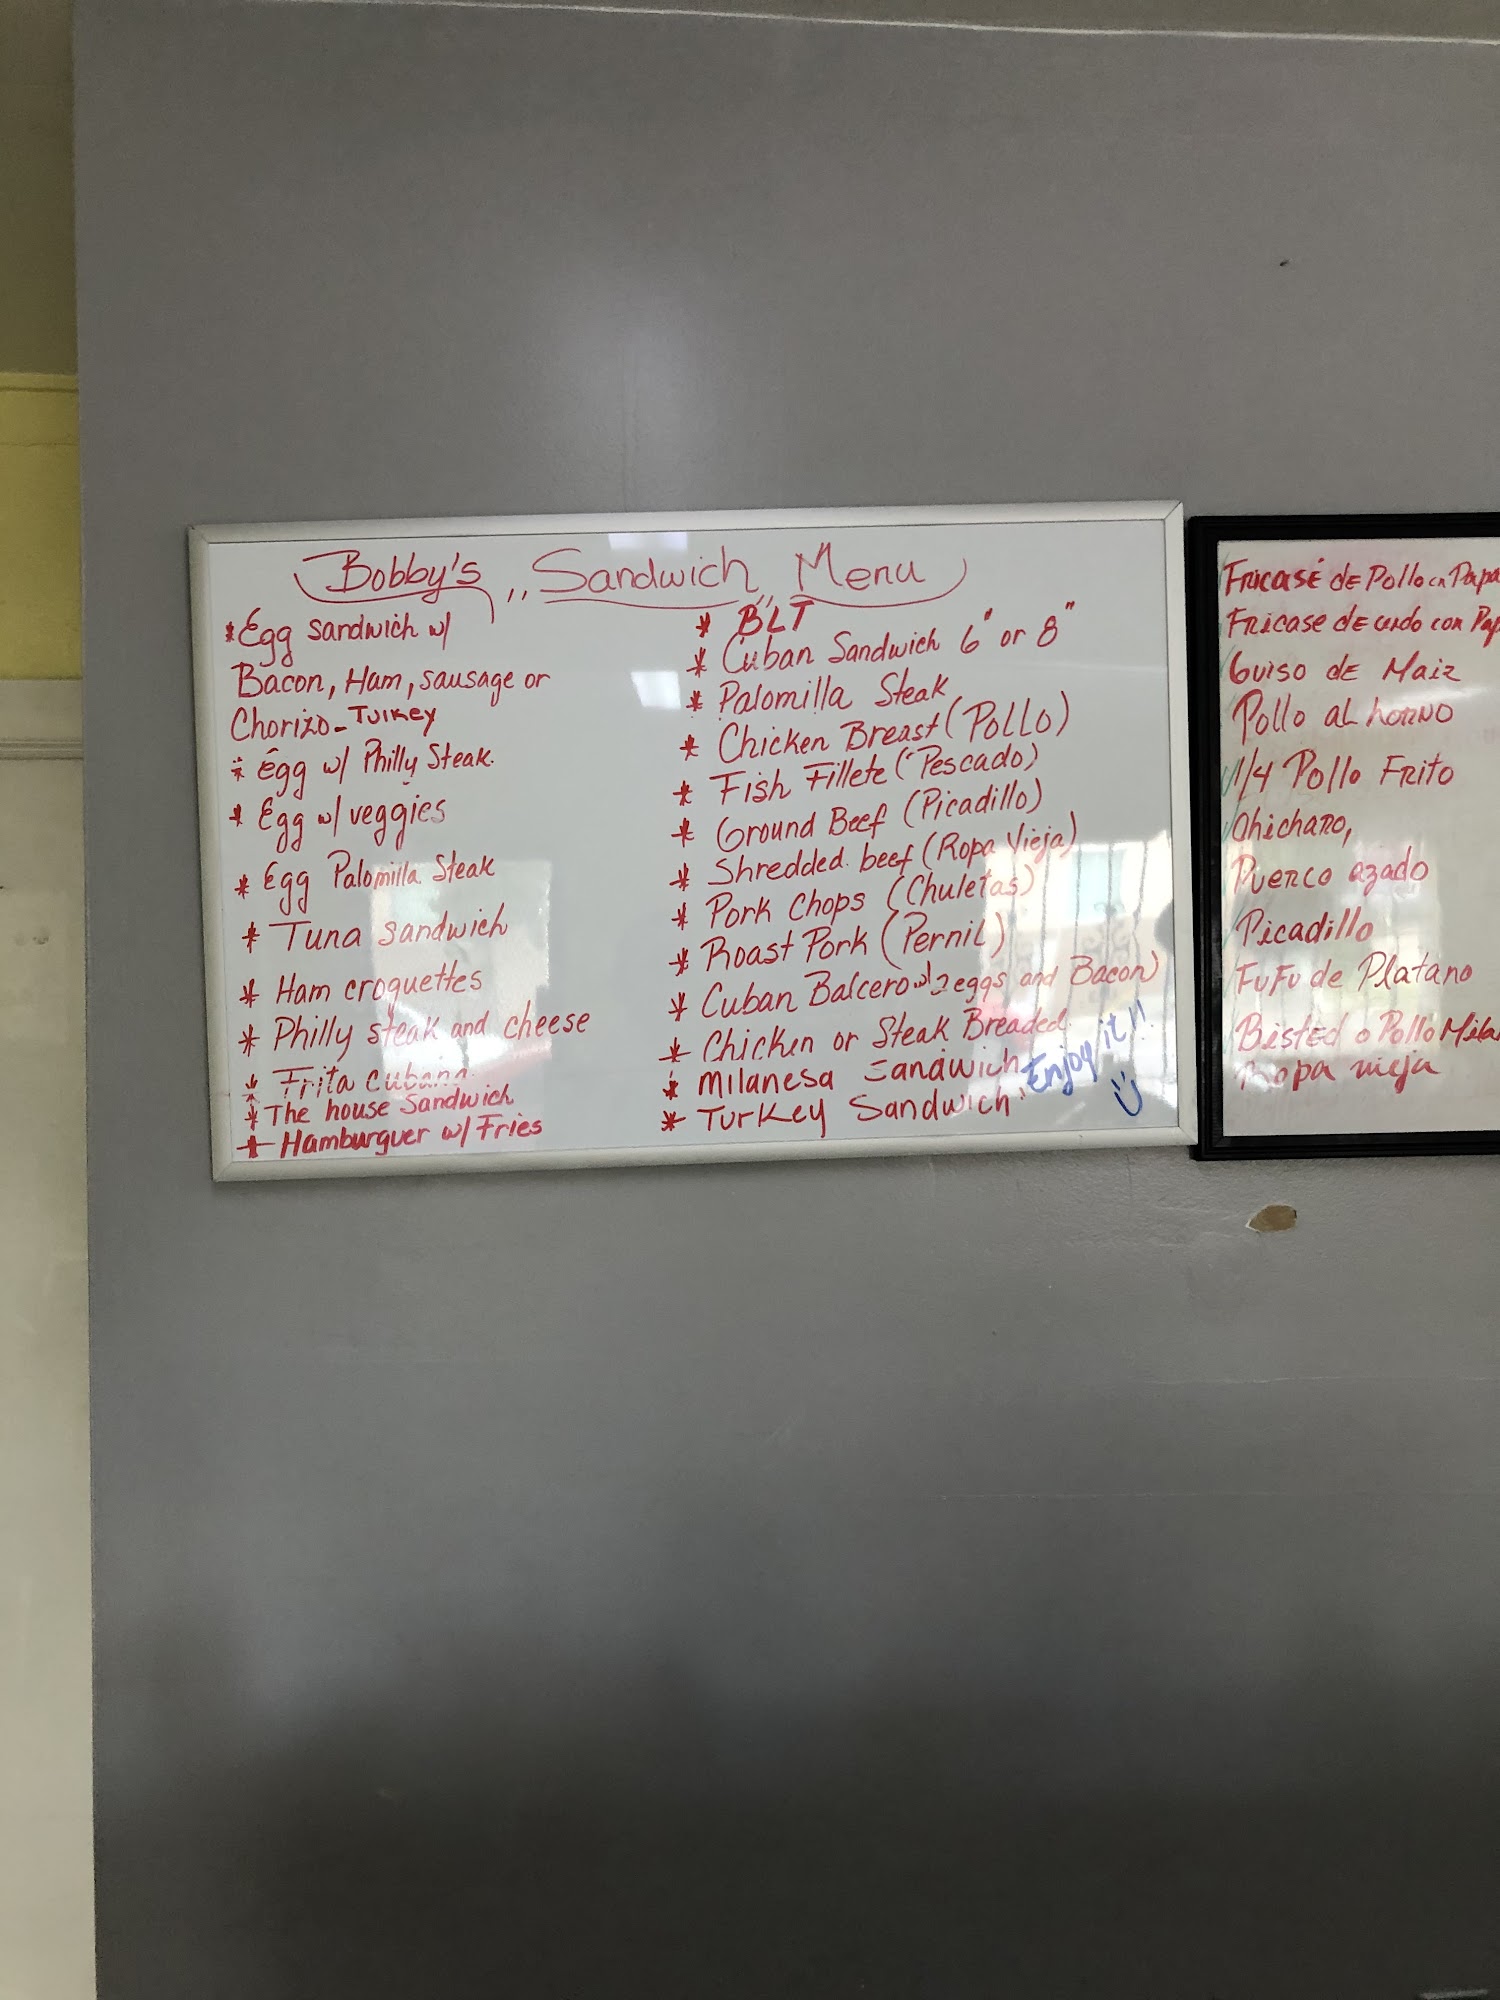 Bobby's "Sandwich" Menu
* Egg sandwich w/
Bacon, Ham, sausage or
Chorizo - Turkey
* Egg w/ Philly Steak.
* Egg w/ veggies
* Egg Palomilla Steak
* Tuna sandwich
* Ham croquettes
* Philly steak and cheese
* Frita cubana
* The house Sandwich
* Hamburguer w/ Fries
* BLT
* Cuban Sandwich 6" or 8"
* Palomilla Steak
* Chicken Breast (Pollo)
* Fish Fillete (Pescado)
* Ground Beef (Picadillo)
* Shredded beef (Ropa Vieja)
* Pork Chops (Chuletas)
* Roast Pork (Pernil)
* Cuban Balcero w/ 2 eggs and Bacon)
* Chicken or Steak Breaded
* Milanesa Sandwich
* Turkey Sandwich
Enjoy it!!
Fricasé de Pollo cn Papa
Fricase de cerdo con Pap
Guiso de Maiz
Pollo al horno
1/4 Pollo Frito
Chicharo,
Puerco azado
Picadillo
FuFu de Platano
Bisted o Pollo Mila
Ropa vieja